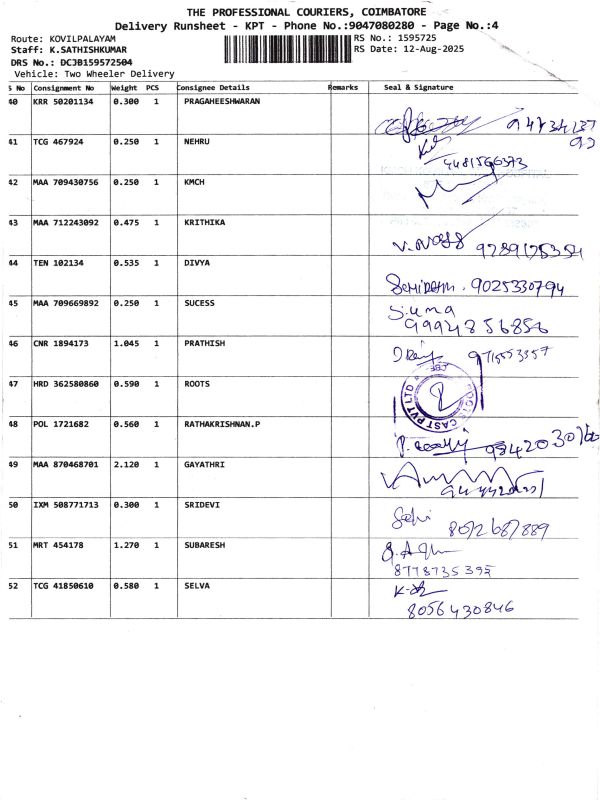 THE PROFESSIONAL COURIERS, COIMBATORE
Delivery Runsheet - KPT - Phone No.:9047080280 - Page No.:4
Route: KOVILPALAYAM
RS No.: 1595725
Staff: K.SATHISHKUMAR
RS Date: 12-Aug-2025
DRS No.: DCJB159572504
Vehicle: Two Wheeler Delivery
S No Consignment No Weight PCS Consignee Details Remarks Seal & Signature
40 KRR 50201134 0.300 1 PRAGAHEESHWARAN
41 TCG 467924 0.250 1 NEHRU
42 MAA 709430756 0.250 1 KMCH
43 MAA 712243092 0.475 1 KRITHIKA
44 TEN 102134 0.535 1 DIVYA 9025330794
45 MAA 709669892 0.250 1 SUCESS Suma
9994856856
46 CNR 1894173 1.045 1 PRATHISH 9715553357
47 HRD 362580860 0.590 1 ROOTS ROOTS CAST PVT LTD CBE
48 POL 1721682 0.560 1 RATHAKRISHNAN.P
49 MAA 870468701 2.120 1 GAYATHRI
50 IXM 508771713 0.300 1 SRIDEVI
8072687889
51 MRT 454178 1.270 1 SUBARESH
8778735395
52 TCG 41850610 0.580 1 SELVA
8056430846